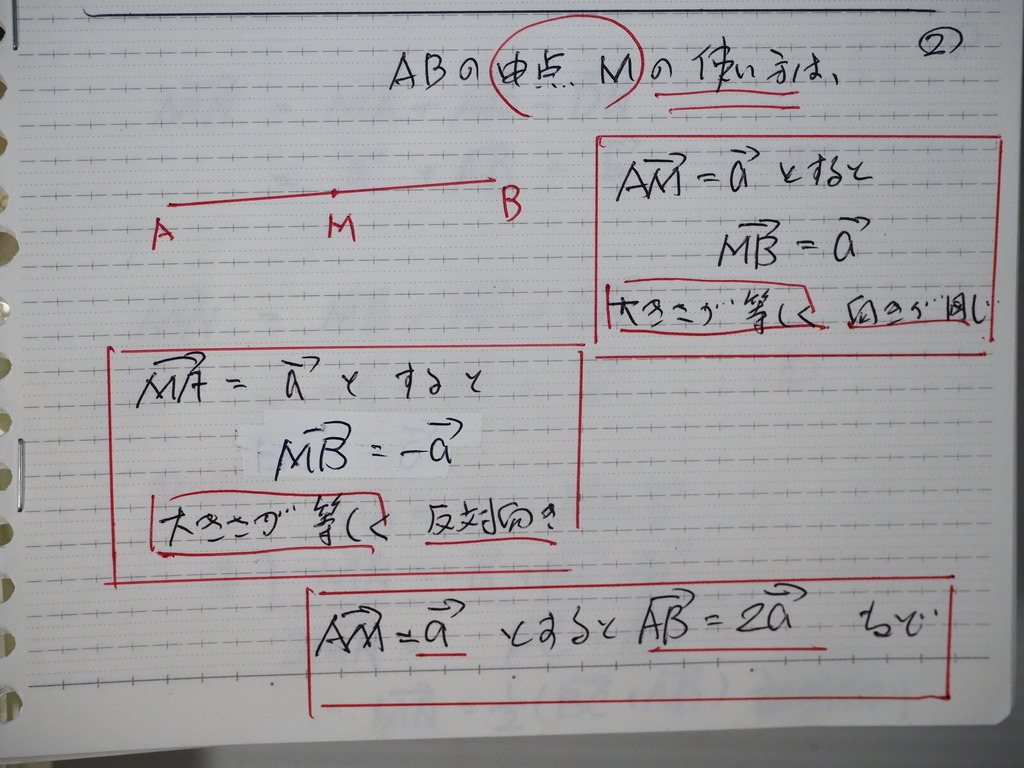 ②
ABの中点Mの使い方は、
A M B
AM→ = a→ とすると
MB→ = a→
大きさが等しく 向きが同じ
MA→ = a→ とすると
MB→ = -a→
大きさが等しく 反対向き
AM→ = a→ とすると AB→ = 2a→ など